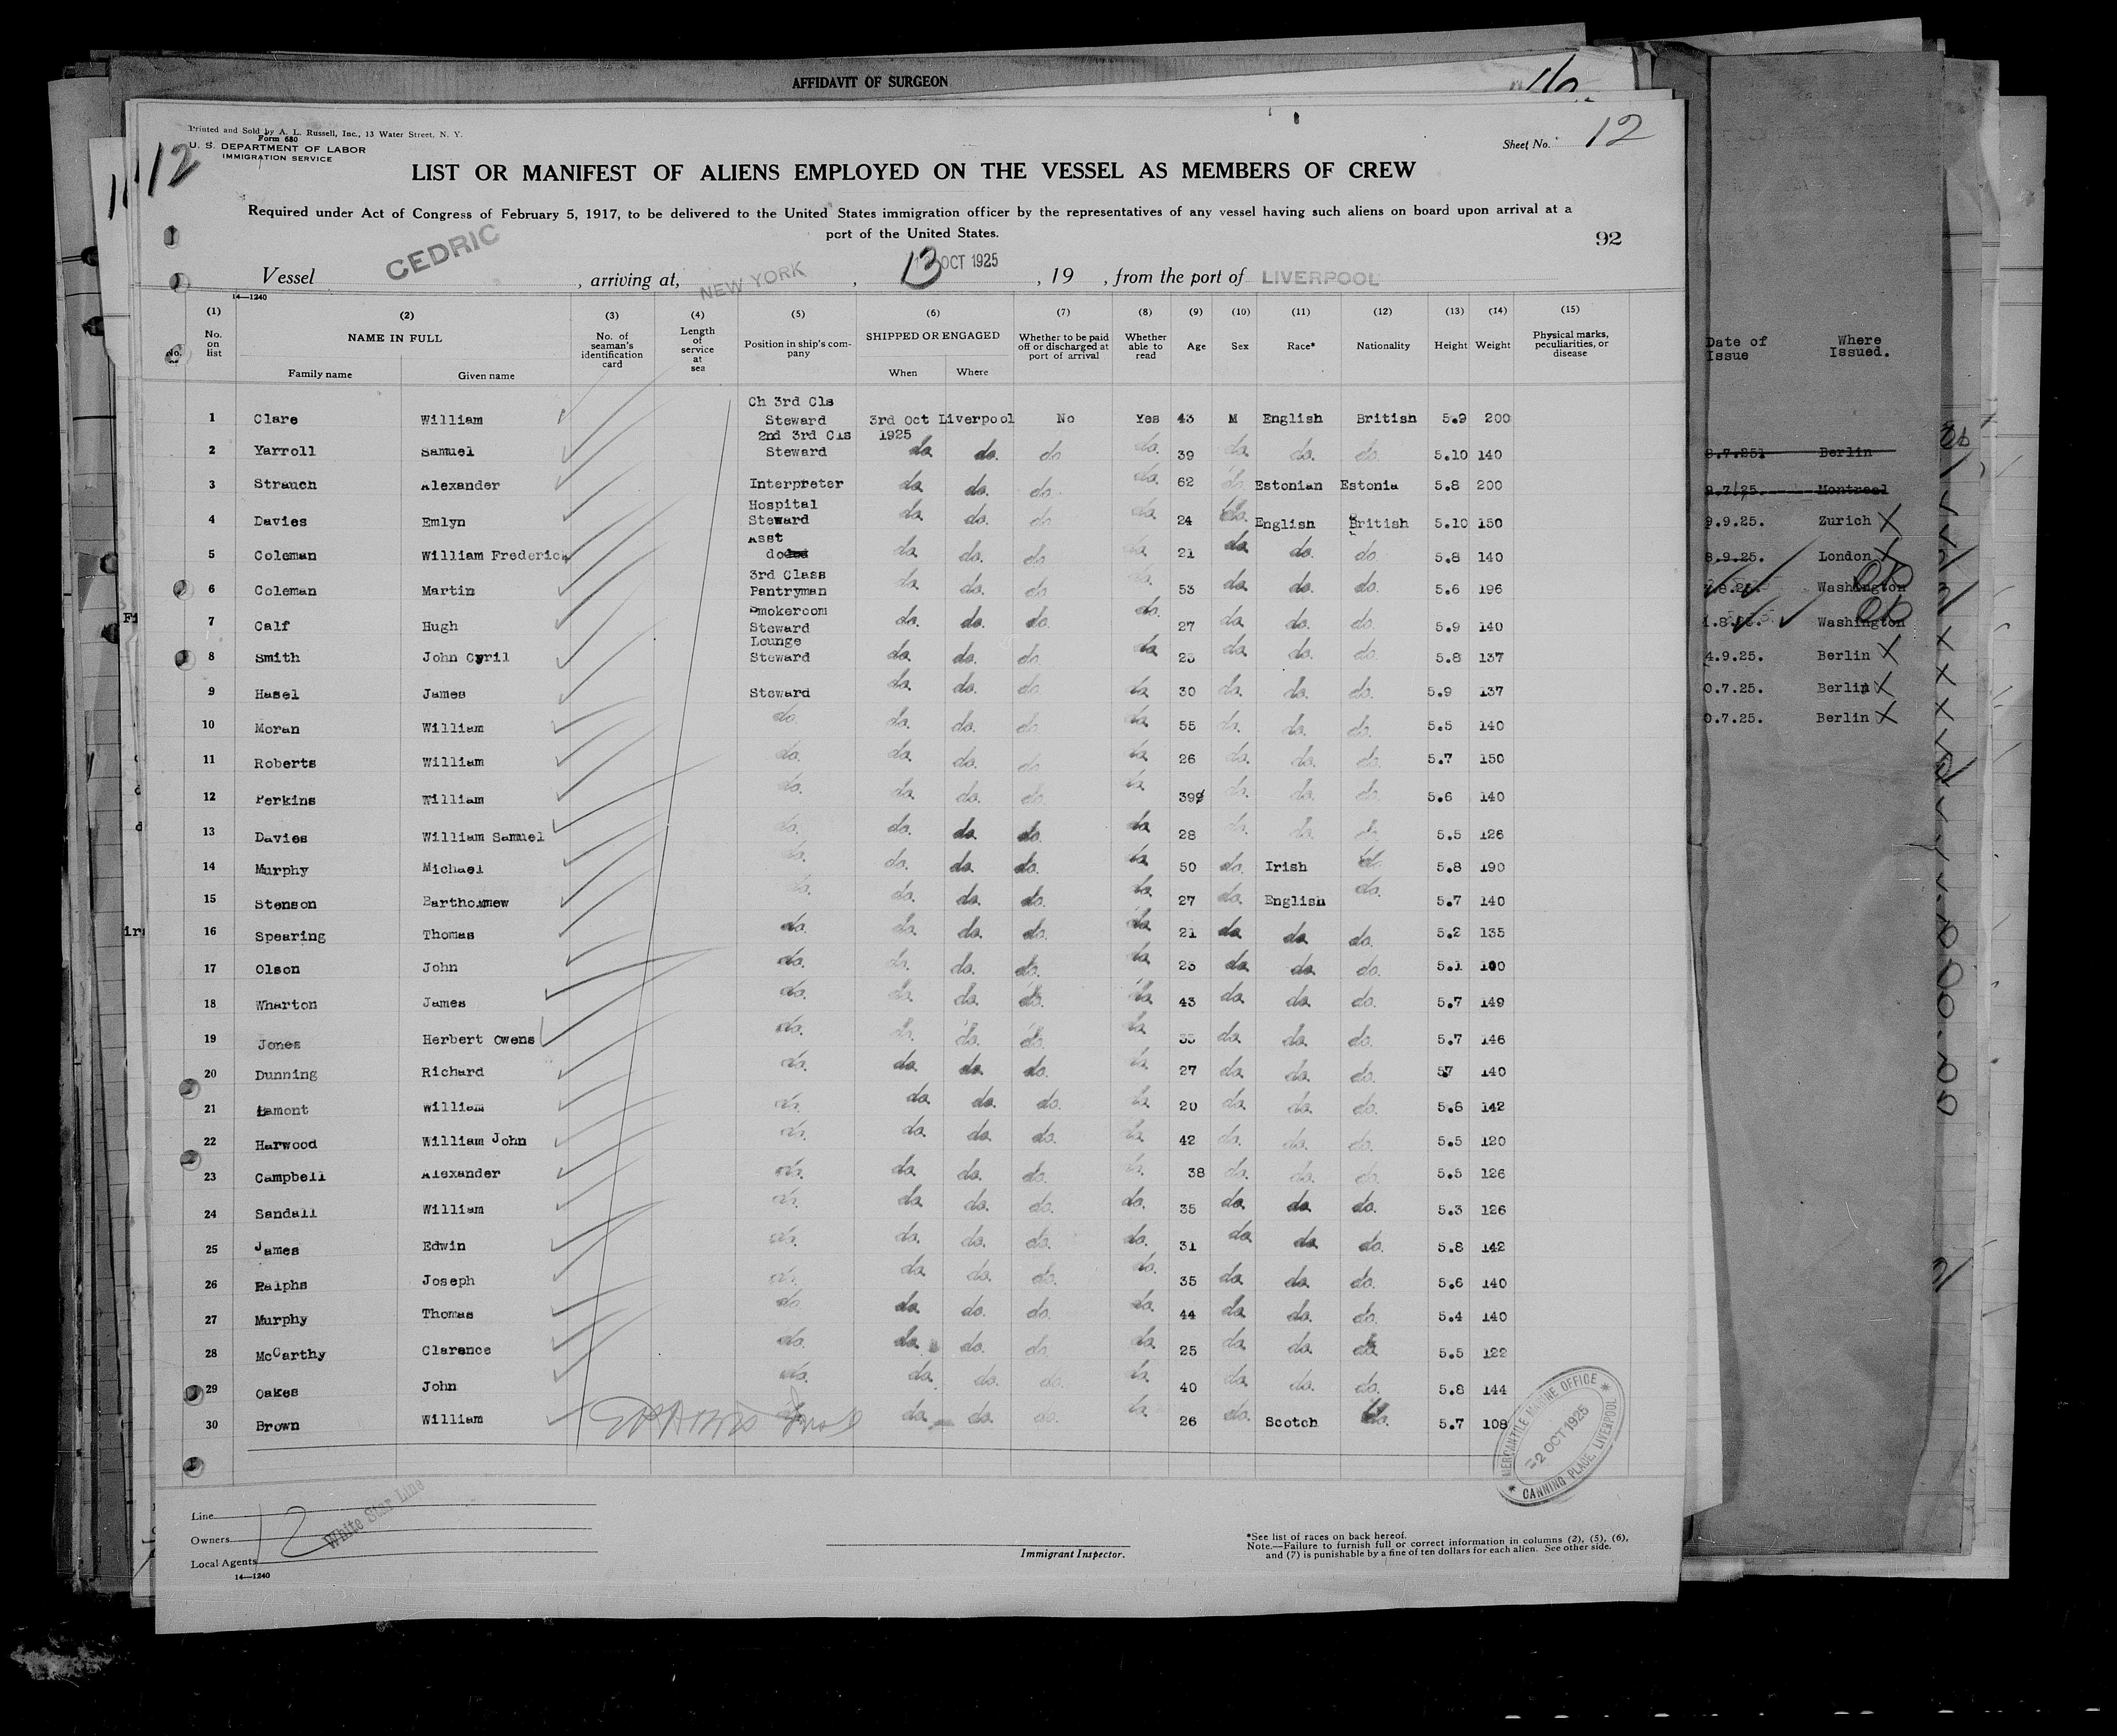 AFFIDAVIT OF SURGEON
16
Printed and Sold by A. L. Russell, Inc., 13 Water Street, N. Y.
Form 680
U. S. DEPARTMENT OF LABOR
IMMIGRATION SERVICE
12
Sheet No. 12
LIST OR MANIFEST OF ALIENS EMPLOYED ON THE VESSEL AS MEMBERS OF CREW
Required under Act of Congress of February 5, 1917, to be delivered to the United States immigration officer by the representatives of any vessel having such aliens on board upon arrival at a
port of the United States.
92
Vessel CEDRIC , arriving at, NEW YORK , 13 OCT 1925 , 19 , from the port of LIVERPOOL
14—1240
(1) (2) (3) (4) (5) (6) (7) (8) (9) (10) (11) (12) (13) (14) (15)
No. on list NAME IN FULL No. of seaman's identification card Length of service at sea Position in ship's company SHIPPED OR ENGAGED Whether to be paid off or discharged at port of arrival Whether able to read Age Sex Race* Nationality Height Weight Physical marks, peculiarities, or disease
Family name Given name When Where
1 Clare William Ch 3rd Cls Steward 3rd Oct 1925 Liverpool No Yes 43 M English British 5.9 200
2 Yarroll Samuel 2nd 3rd Cls Steward do. do. do do. 39 do. do. do. 5.10 140
3 Strauch Alexander Interpreter do. do. do. do. 62 do. Estonian Estonia 5.8 200
4 Davies Emlyn Hospital Steward do. do. do do. 24 do. English British 5.10 150
5 Coleman William Frederick Asst do do. do. do. do. 21 do. do. do 5.8 140
6 Coleman Martin 3rd Class Pantryman do. do. do. do. 53 do. do. do. 5.6 196
7 Calf Hugh Smokeroom Steward do. do. do. do. 27 do. do. do. 5.9 140
8 Smith John Cyril Lounge Steward do. do. do. do. 23 do. do. do. 5.8 137
9 Hasel James Steward do. do. do. do. 30 do. do. do. 5.9 137
10 Moran William do. do. do. do. do. 55 do. do. do. 5.5 140
11 Roberts William do. do. do. do. do. 26 do. do. do. 5.7 150
12 Perkins William do. do. do. do. do. 39 do. do. do. 5.6 140
13 Davies William Samuel do. do. do. do. do. 28 do. do. do. 5.5 126
14 Murphy Michael do. do. do. do. do. 50 do. Irish do. 5.8 190
15 Stenson Barthommew do. do. do. do. do. 27 do. English do. 5.7 140
16 Spearing Thomas do. do. do. do. do. 21 do. do. do. 5.2 135
17 Olson John do. do. do. do. do. 23 do. do. do. 5.1
18 Wharton James do. do. do. do. do. 43 do. do. do. 5.7 149
19 Jones Herbert Owens do. do. do. do. do. 33 do. do. do. 5.7 146
20 Dunning Richard do. do. do. do. do. 27 do. do. do. 57 140
21 Lamont William do. do. do. do. do. 20 do. do. do. 5.8 142
22 Harwood William John do. do. do. do. do. 42 do. do. do. 5.5 120
23 Campbell Alexander do. do. do. do. do. 38 do. do. do. 5.5 126
24 Sandall William do. do. do. do. do. 35 do. do. do. 5.3 126
25 James Edwin do. do. do. do. do. 31 do. do. do. 5.8 142
26 Ralphs Joseph do. do. do. do. do. 35 do. do. do. 5.6 140
27 Murphy Thomas do. do. do. do. do. 44 do. do. do. 5.4 140
28 McCarthy Clarence do. do. do. do. do. 25 do. do. do. 5.5 122
29 Oakes John do. do. do. do. do. 40 do. do. do. 5.8 144
30 Brown William do. do. do. do. do. 26 do. Scotch do. 5.7 108
MERCANTILE MARINE OFFICE
2 OCT 1925
CANNING PLACE, LIVERPOOL
Line
Owners
Local Agents
12
White Star Line
14—1240
Immigrant Inspector.
*See list of races on back hereof.
Note.—Failure to furnish full or correct information in columns (2), (5), (6),
and (7) is punishable by a fine of ten dollars for each alien. See other side.
Date of Issue Where Issued.
8.7.251 Berlin
9.7.25. Montreal
9.9.25. Zurich X
8.9.25. London X
Washington
Washington
4.9.25. Berlin X
0.7.25. Berlin X
0.7.25. Berlin X